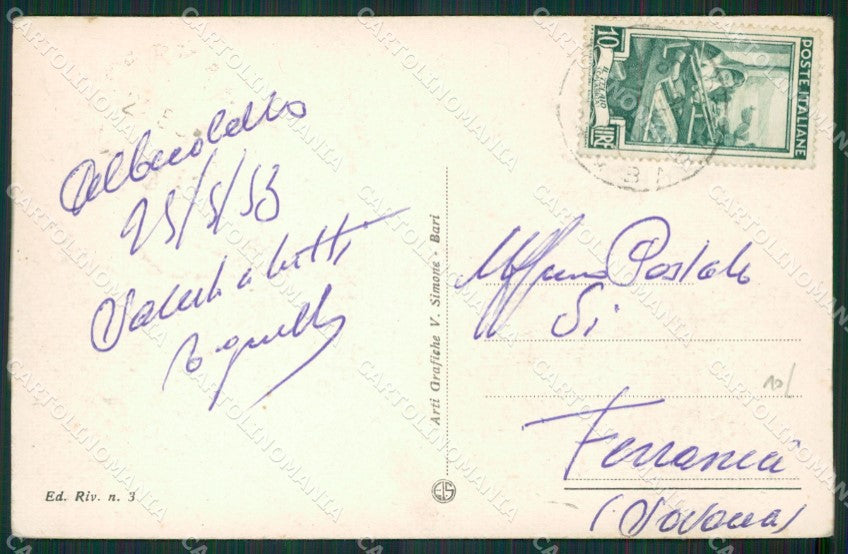 Alberobello
25/5/53
Saluti a tutti
Ed. Riv. n. 3
Arti Grafiche V. Simone - Bari
10 LIRE
POSTE ITALIANE
Ufficio Postale
Di
Ferrania
(Savona)
CARTOLINOMANIA